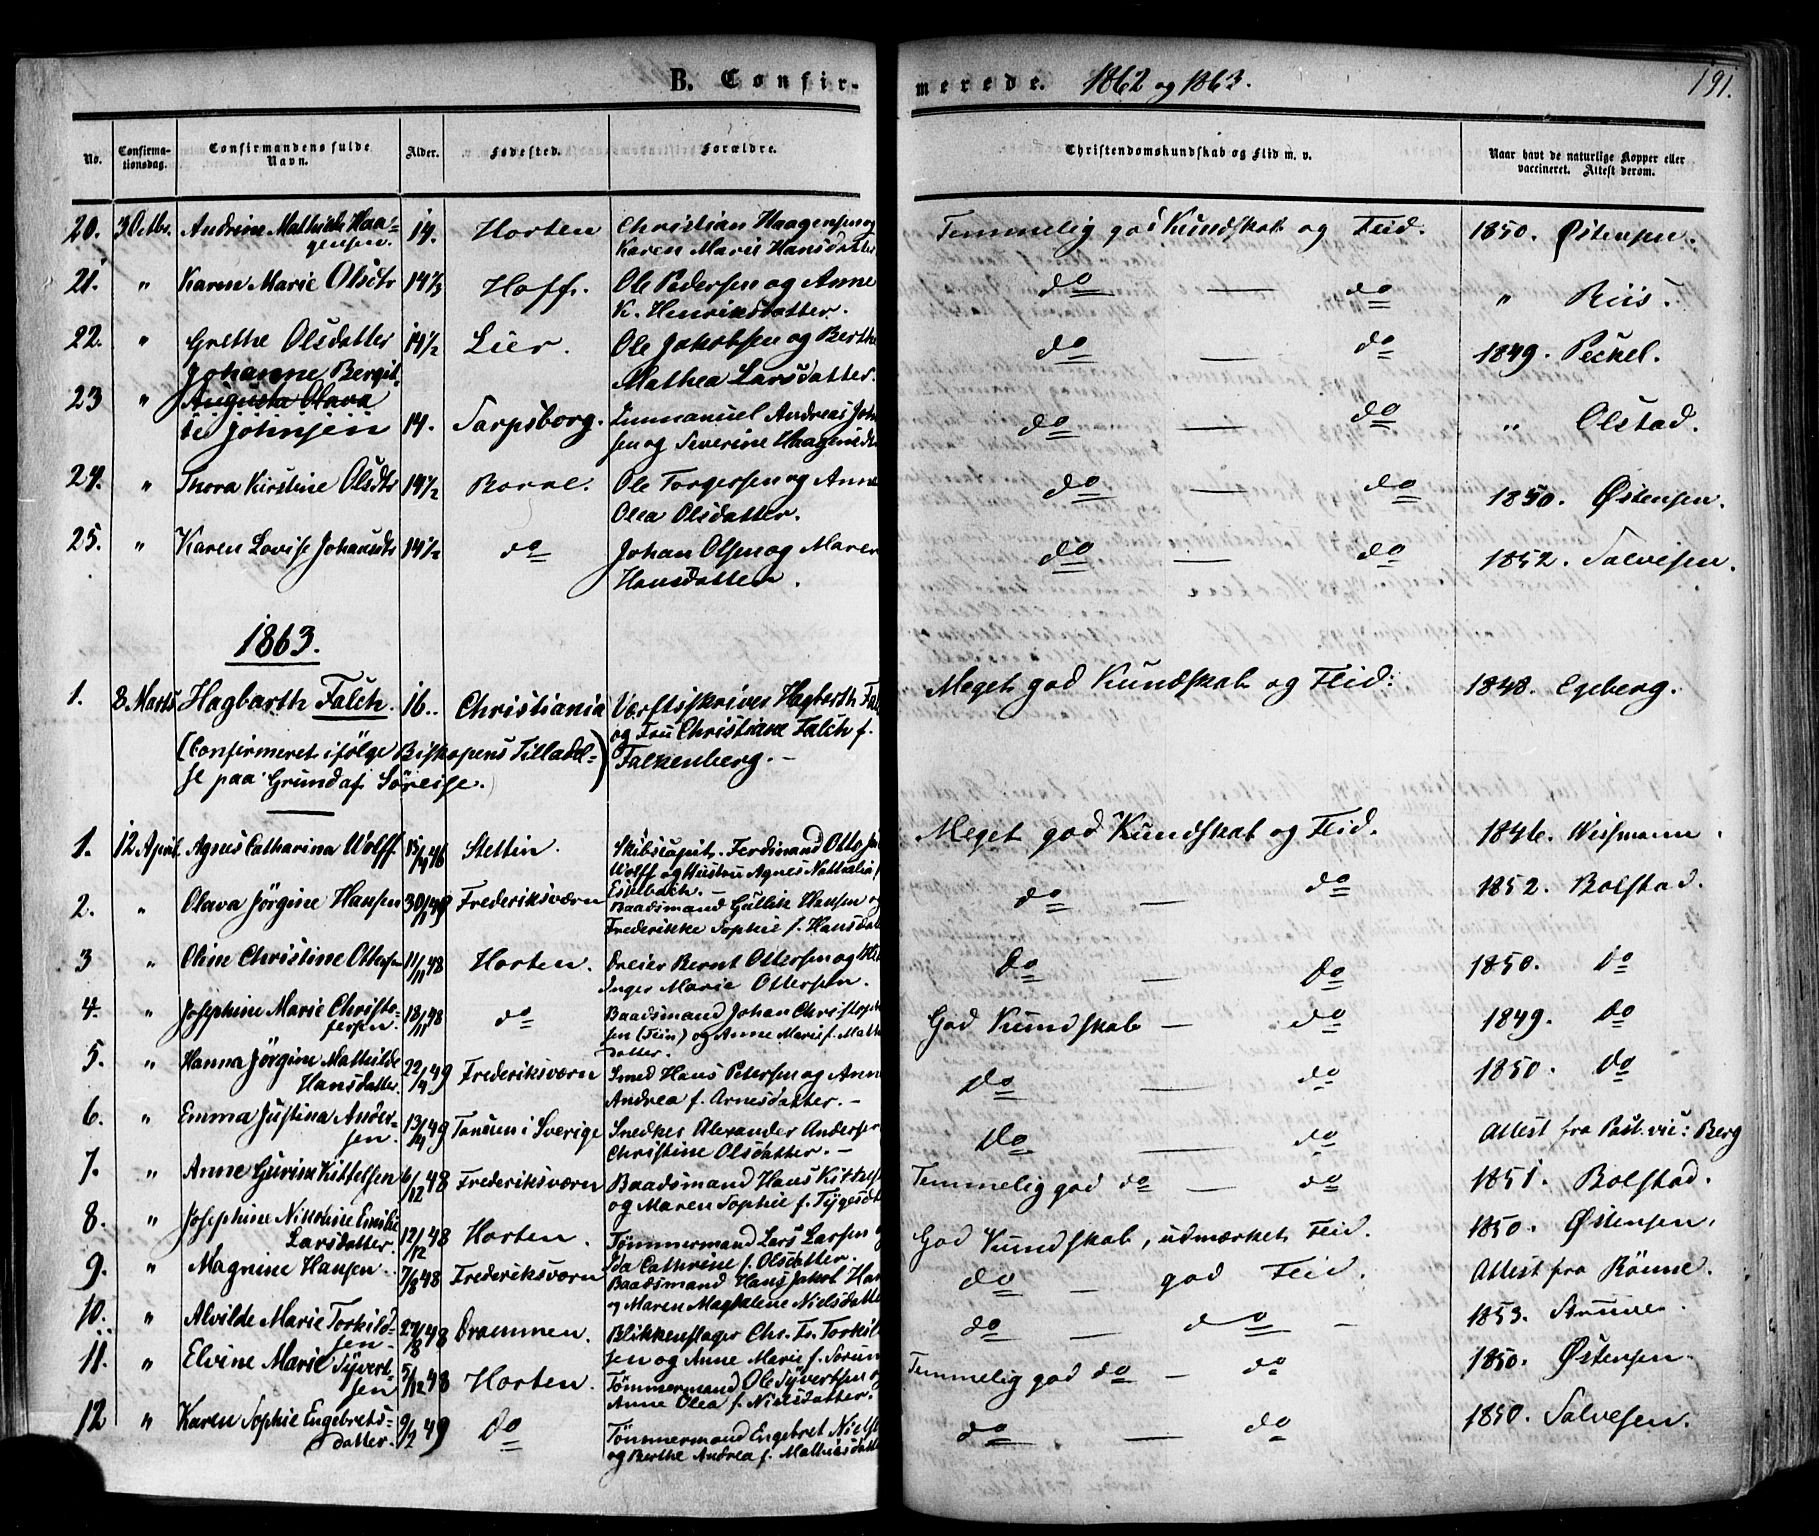 B. Confir-
merede. 1862 og 1863.
191.
No.
Confirma-
tionsdag.
Confirmandens fulde
Navn.
Alder.
Fødested.
Forældre.
Christendomskundskab og Flid m. v.
Naar havt de naturlige Kopper eller
vaccineret. Attest derom.
20. 3 Octbr. Andrine Mathilde Haa-
gensen 14. Horten Christian Haagensen og
Karen Marie Hansdatter Temmelig god Kundskab og Flid. 1850. Østensen.
21. " Karen Marie Olsdtr 14 1/3 Hoff. Ole Pedersen og Anne
K. Henriksdatter. do — do " Riis.
22. " Grethe Olsdatter 14 1/2 Lier. Ole Jakobsen og Berthe
Mathea Larsdatter. do — do 1849. Peckel.
Johanne Bergit-
23 " Augusta Olava
te Johnsen 14. Sarpsborg. Immanuel Andreas John
sen og Severine Haagensdt do — do " Olstad.
24. " Thora Kirstine Olsdtr 14 1/2 Borre. Ole Torgersen og Anne
Olea Olsdatter. do — do 1850. Østensen.
25. " Karen Lovise Johansdtr 14 1/2 do Johan Olsen og Maren
Hansdatter. do — do 1852. Salvesen.
1863.
1. 8 Marts Hagbarth Falch. 16.. Christiania Værftsskriver Hagbarth Fal
og Fru Christiane Falch f.
Falkenberg. — Meget god Kundskab og Flid: 1848. Egeberg.
(Confirmeret ifölge Biskopens Tilladel-
se paa Grund af Söreise.)
1. 12 April. Agnes Catharina Wolff 15/4 46 Stettin. Skibscapit. Ferdinand Otto
Wolff og Hustru Agnes Nathalia f
Eskebach. Meget god Kundskab og Flid. 1846. Weismann.
2. " Olava Jörgine Hansen 30/1 49 Frederiksværn Baadsmand Gullik Hansen og
Frederikke Sophie f. Hansdat do — do 1852. Bolstad.
3 " Oline Christine Ottersen 11/11 48 Horten. Dreier Bernt Ottersen og
Inger Marie Ottersen. Do — Do 1850. Do
4 " Josephine Marie Christo-
fersen 18/11 48 do Baadsmand Johan Christoph
sen (Fiin) og Anne Marie f. Math
datter. God Kundskab — do 1849. Do
5. " Hanna Jörgine Mathilde
Hansdatter. 22/4 49 Frederiksværn Smed Hans Petersen og Anne
Andrea f. Arnesdatter. — Do — do 1850. Do
6. " Emma Justina Ander-
sen. 13/4 49 Tanum i Sverige Snedker Alexander Andersen
Christine Olsdatter. — Do — do Attest fra Past. vic: Berg
7. " Anne Gurina Kittelsen 6/12 48 Frederiksværn Baadsmand Hans Kittelse
og Maren Sophie f. Tygesdt Temmelig god do — do 1851. Bolstad.
8. " Josephine Nicoline Emilie
Larsdatter. 12/12 48 Horten. Tömmermand Lars Larsen og
Ida Cathrine f. Olsdatter. God Kundskab, udmærket Flid. 1850. Østensen.
9. " Magnine Hansen. 7/8 48 Frederiksværn Baadsmand Hans Jakob Han
og Maren Magdalene Nielsdatte do — god Flid. Attest fra Rönne.
10. " Alvilde Marie Torkild-
sen. 27/8 48 Drammen. Blikkenslager Chr. Fr. Torkil
sen og Anne Marie f. Sörum do — do — 1853.
11. " Elvine Marie Syvert-
sen 5/12 48 Horten. Tömmermand Ole Syvertsen og
Anne Olea f. Nielsdatter. Temmelig god do — do 1850. Østensen.
12 " Karen Sophie Engebrets-
datter. 9/2 49 Do Tömmermand Engebret Niels
og Berthe Andrea f. Mathiasdatte do — do 1850. Salvesen.